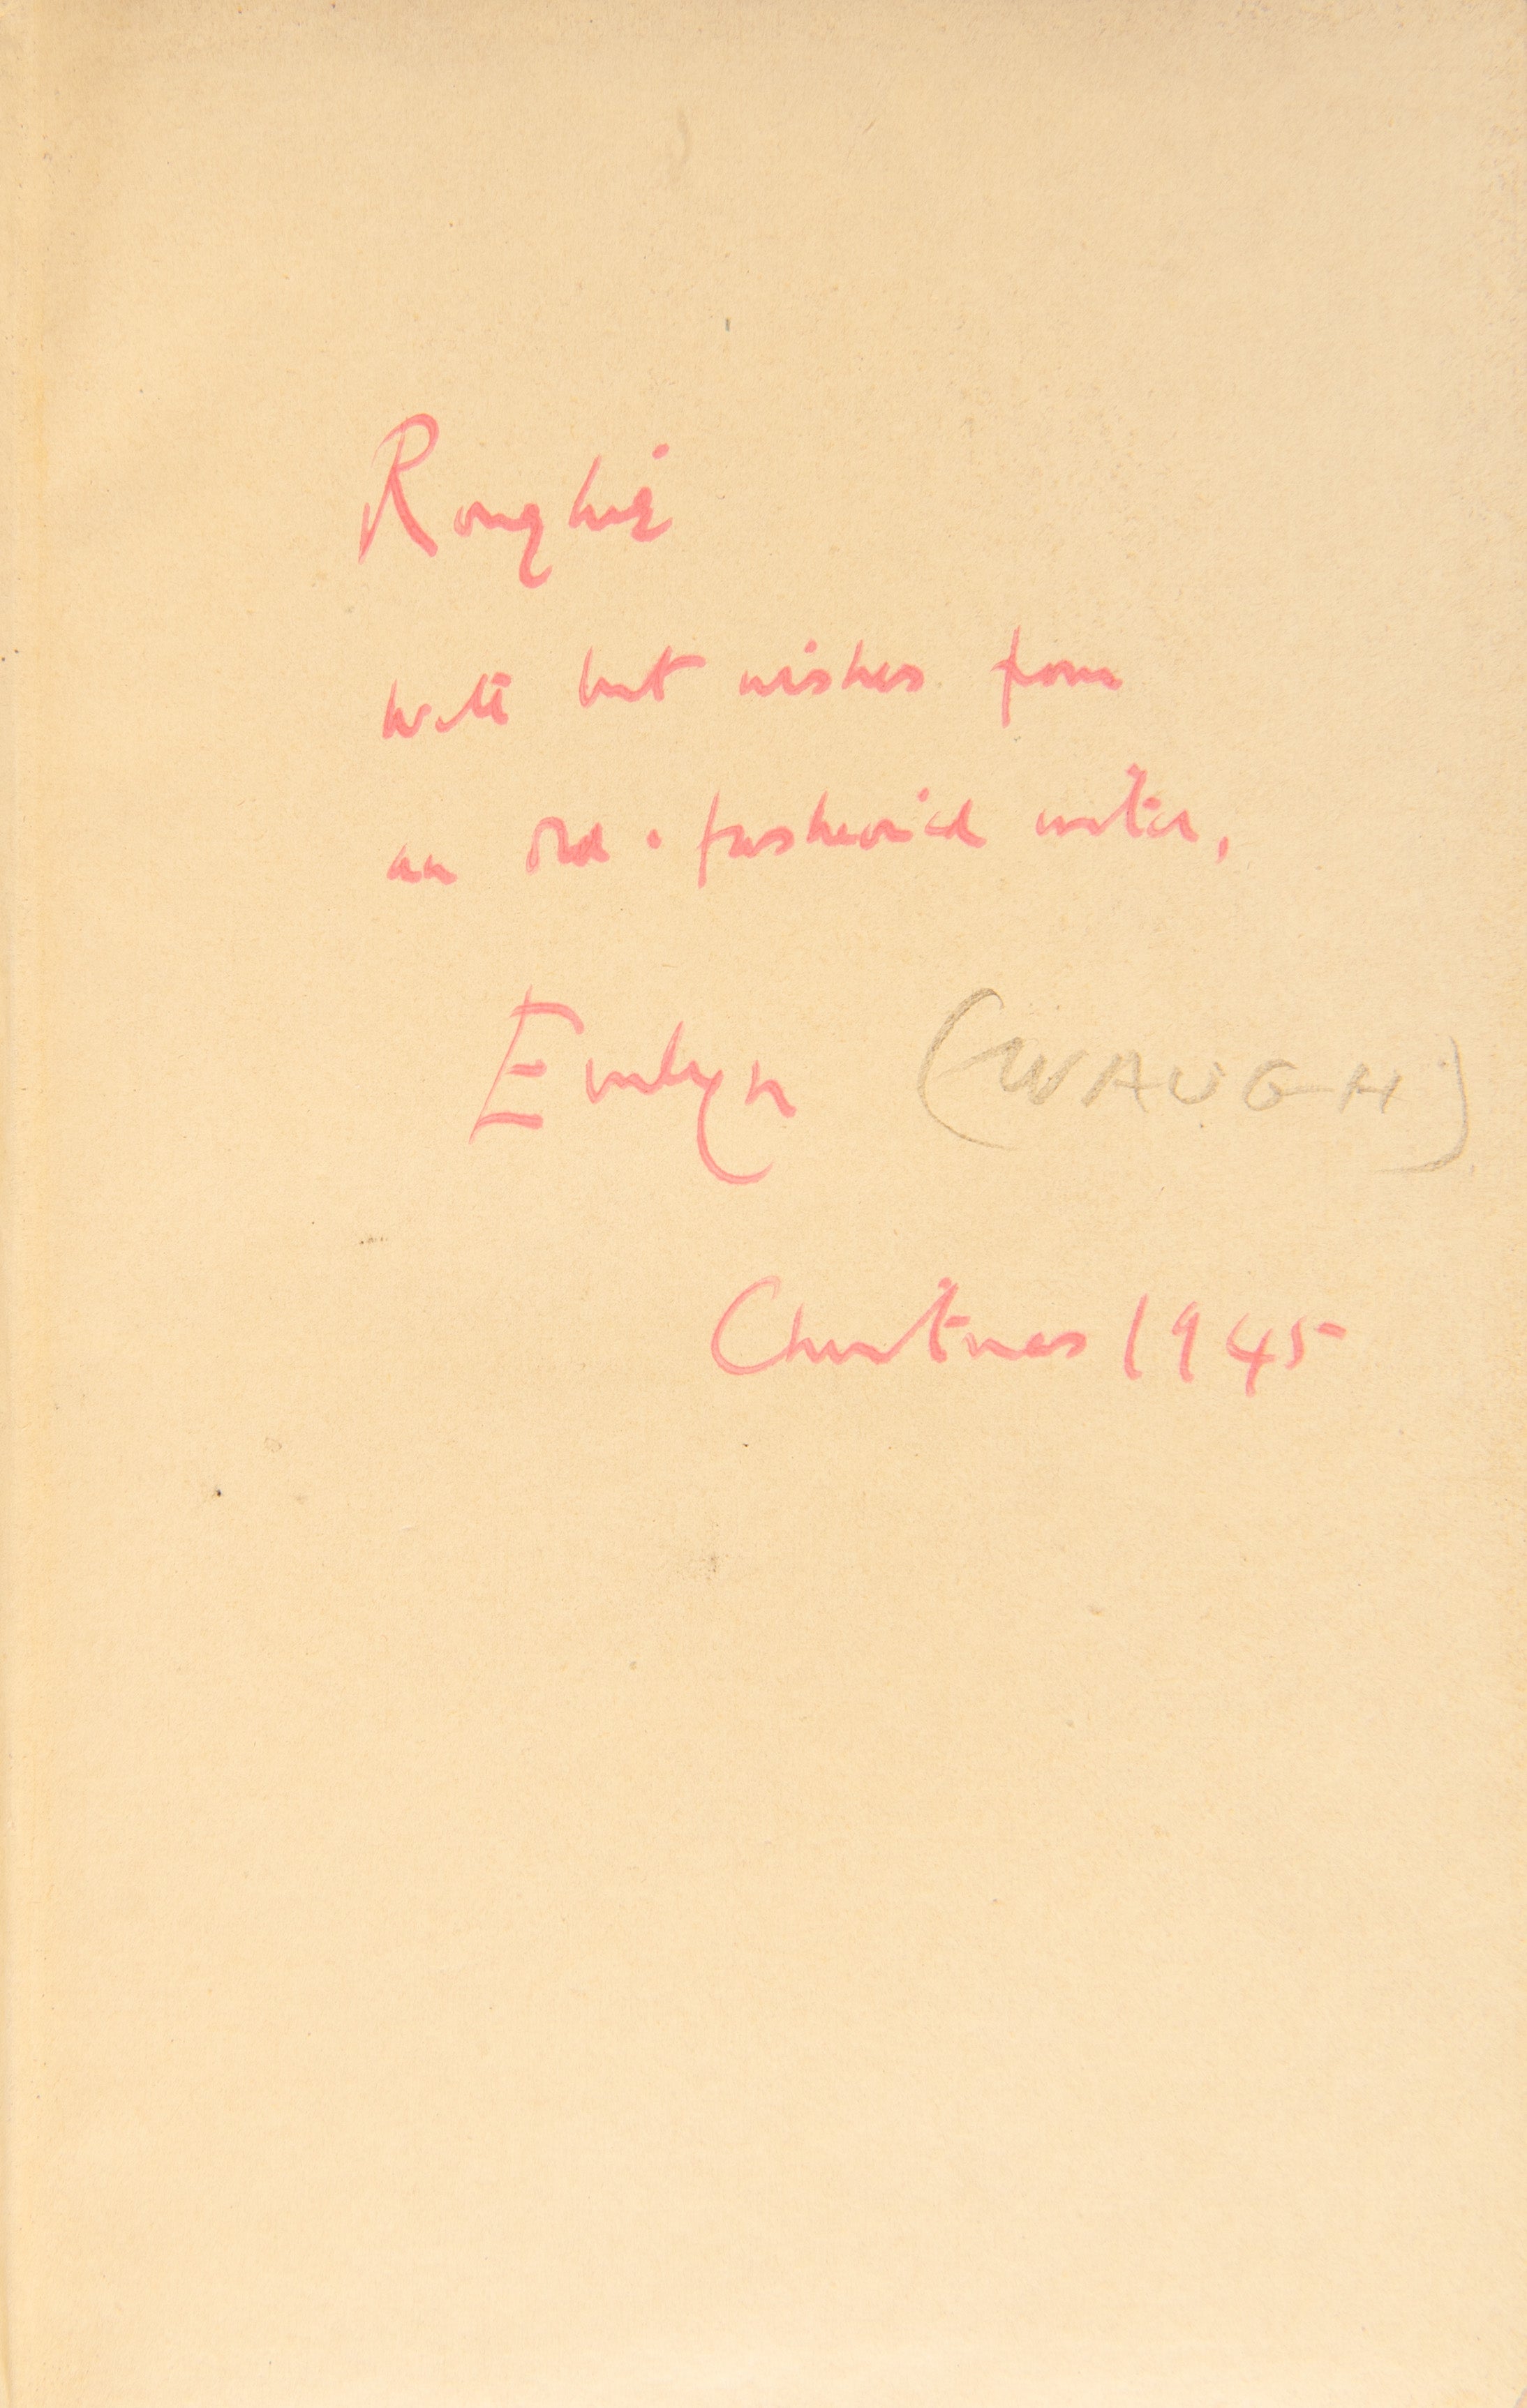 Roughie
with best wishes from
an old-fashioned writer,
Evelyn (WAUGH)
Christmas 1945